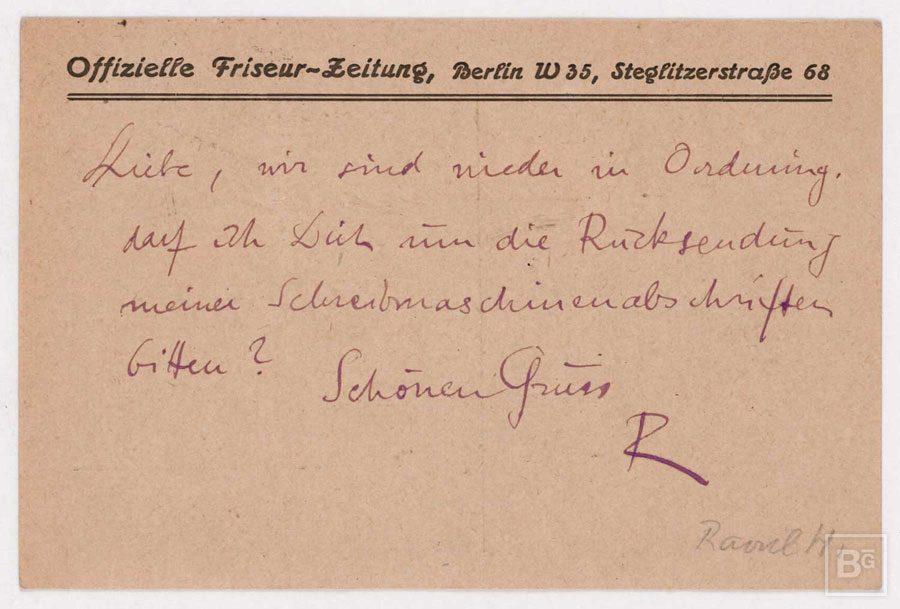 Offizielle Friseur-Zeitung, Berlin W 35, Steglitzerstraße 68
Liebe, wir sind wieder in Oordnung.
darf ich Dich um die Rücksendung
meiner Schreibmaschinenabschriften
bitten?
Schönen Gruss
R
Raoul H.
BG